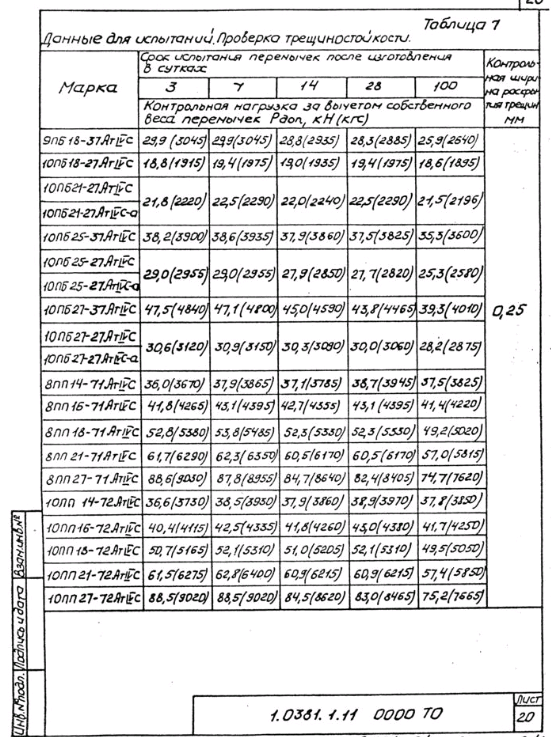 20
Таблица 7
Данные для испытаний. Проверка трещиностойкости.
Марка
Срок испытания перемычек после изготовления
в сутках
Контроль-
ная шири-
на раскры-
тия трещин
мм
3 7 14 28 100
Контрольная нагрузка за вычетом собственного
веса перемычек Рдоп, кН (кгс)
9ПБ18-37АтIVС 29,9 (3045) 29,9(3045) 28,8(2935) 28,3(2885) 25,9(2640)
10ПБ18-27АтIVС 18,8(1915) 19,4(1975) 19,0(1935) 19,4(1975) 18,6(1895)
10ПБ21-27АтIVС
21,8(2220) 22,5(2290) 22,0(2240) 22,5(2290) 21,5(2196)
10ПБ21-27АтIVС-а
10ПБ25-37АтIVС 38,2(3900) 38,6(3935) 37,9(3860) 37,5(3825) 35,3(3600)
10ПБ25-27АтIVС
29,0(2955) 29,0(2955) 27,9(2850) 27,7(2820) 25,3(2580)
10ПБ25-27АтIVС-а
10ПБ27-37АтIVС 47,5(4840) 47,1(4800) 45,0(4590) 43,8(4465) 39,3(4010) 0,25
10ПБ27-27АтIVС
30,6(3120) 30,9(3150) 30,3(3090) 30,0(3060) 28,2(2875)
10ПБ27-27АтIVС-а
8ПП14-71АтIVС 36,0(3670) 37,9(3865) 37,1(3785) 38,7(3945) 37,5(3825)
8ПП16-71АтIVС 41,8(4265) 43,1(4395) 42,7(4355) 43,1(4395) 41,4(4220)
8ПП18-71АтIVС 52,8(5380) 53,8(5485) 52,3(5330) 52,3(5330) 49,2(5020)
8ПП21-71АтIVС 61,7(6290) 62,3(6350) 60,5(6170) 60,5(6170) 57,0(5815)
8ПП27-71АтIVС 88,6(9030) 87,8(8955) 84,7(8640) 82,4(8405) 74,7(7620)
10ПП14-72АтIVС 36,6(3730) 38,5(3930) 37,9(3860) 38,9(3970) 37,8(3850)
10ПП16-72АтIVС 40,4(4115) 42,5(4335) 41,8(4260) 43,0(4380) 41,7(4250)
10ПП18-72АтIVС 50,7(5165) 52,1(5310) 51,0(5205) 52,1(5310) 49,5(5050)
10ПП21-72АтIVС 61,5(6275) 62,8(6400) 60,9(6215) 60,9(6215) 57,4(5850)
10ПП27-72АтIVС 88,5(9020) 88,5(9020) 84,5(8620) 83,0(8465) 75,2(7665)
Инв.№подл. Подпись и дата Взам.инв.№
1.0381.1.11 0000 ТО
Лист
20